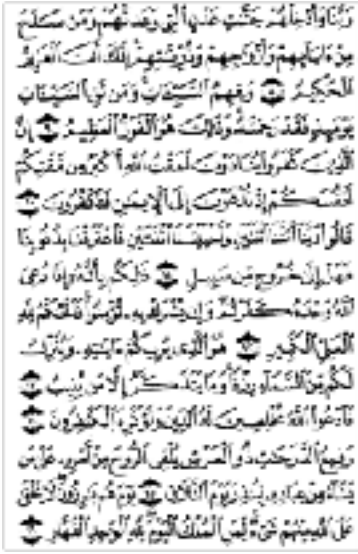 رَبَّنَا وَأَدْخِلْهُمْ جَنَّٰتِ عَدْنٍ ٱلَّتِى وَعَدتَّهُمْ وَمَن صَلَحَ
مِنْ ءَابَآئِهِمْ وَأَزْوَٰجِهِمْ وَذُرِّيَّٰتِهِمْ إِنَّكَ أَنتَ ٱلْعَزِيزُ
ٱلْحَكِيمُ ۝ وَقِهِمُ ٱلسَّيِّـَٔاتِ وَمَن تَقِ ٱلسَّيِّـَٔاتِ
يَوْمَئِذٍ فَقَدْ رَحِمْتَهُۥ وَذَٰلِكَ هُوَ ٱلْفَوْزُ ٱلْعَظِيمُ ۝ إِنَّ
ٱلَّذِينَ كَفَرُوا۟ يُنَادَوْنَ لَمَقْتُ ٱللَّهِ أَكْبَرُ مِن مَّقْتِكُمْ
أَنفُسَكُمْ إِذْ تُدْعَوْنَ إِلَى ٱلْإِيمَٰنِ فَتَكْفُرُونَ ۝
قَالُوا۟ رَبَّنَآ أَمَتَّنَا ٱثْنَتَيْنِ وَأَحْيَيْتَنَا ٱثْنَتَيْنِ فَٱعْتَرَفْنَا بِذُنُوبِنَا
فَهَلْ إِلَىٰ خُرُوجٍ مِّن سَبِيلٍ ۝ ذَٰلِكُم بِأَنَّهُۥٓ إِذَا دُعِىَ
ٱللَّهُ وَحْدَهُۥ كَفَرْتُمْ وَإِن يُشْرَكْ بِهِۦ تُؤْمِنُوا۟ فَٱلْحُكْمُ لِلَّهِ
ٱلْعَلِىِّ ٱلْكَبِيرِ ۝ هُوَ ٱلَّذِى يُرِيكُمْ ءَايَٰتِهِۦ وَيُنَزِّلُ
لَكُم مِّنَ ٱلسَّمَآءِ رِزْقًا وَمَا يَتَذَكَّرُ إِلَّا مَن يُنِيبُ ۝
فَٱدْعُوا۟ ٱللَّهَ مُخْلِصِينَ لَهُ ٱلدِّينَ وَلَوْ كَرِهَ ٱلْكَٰفِرُونَ ۝
رَفِيعُ ٱلدَّرَجَٰتِ ذُو ٱلْعَرْشِ يُلْقِى ٱلرُّوحَ مِنْ أَمْرِهِۦ عَلَىٰ مَن
يَشَآءُ مِنْ عِبَادِهِۦ لِيُنذِرَ يَوْمَ ٱلتَّلَاقِ ۝ يَوْمَ هُم بَٰرِزُونَ لَا يَخْفَىٰ
عَلَى ٱللَّهِ مِنْهُمْ شَىْءٌ لِّمَنِ ٱلْمُلْكُ ٱلْيَوْمَ لِلَّهِ ٱلْوَٰحِدِ ٱلْقَهَّارِ ۝